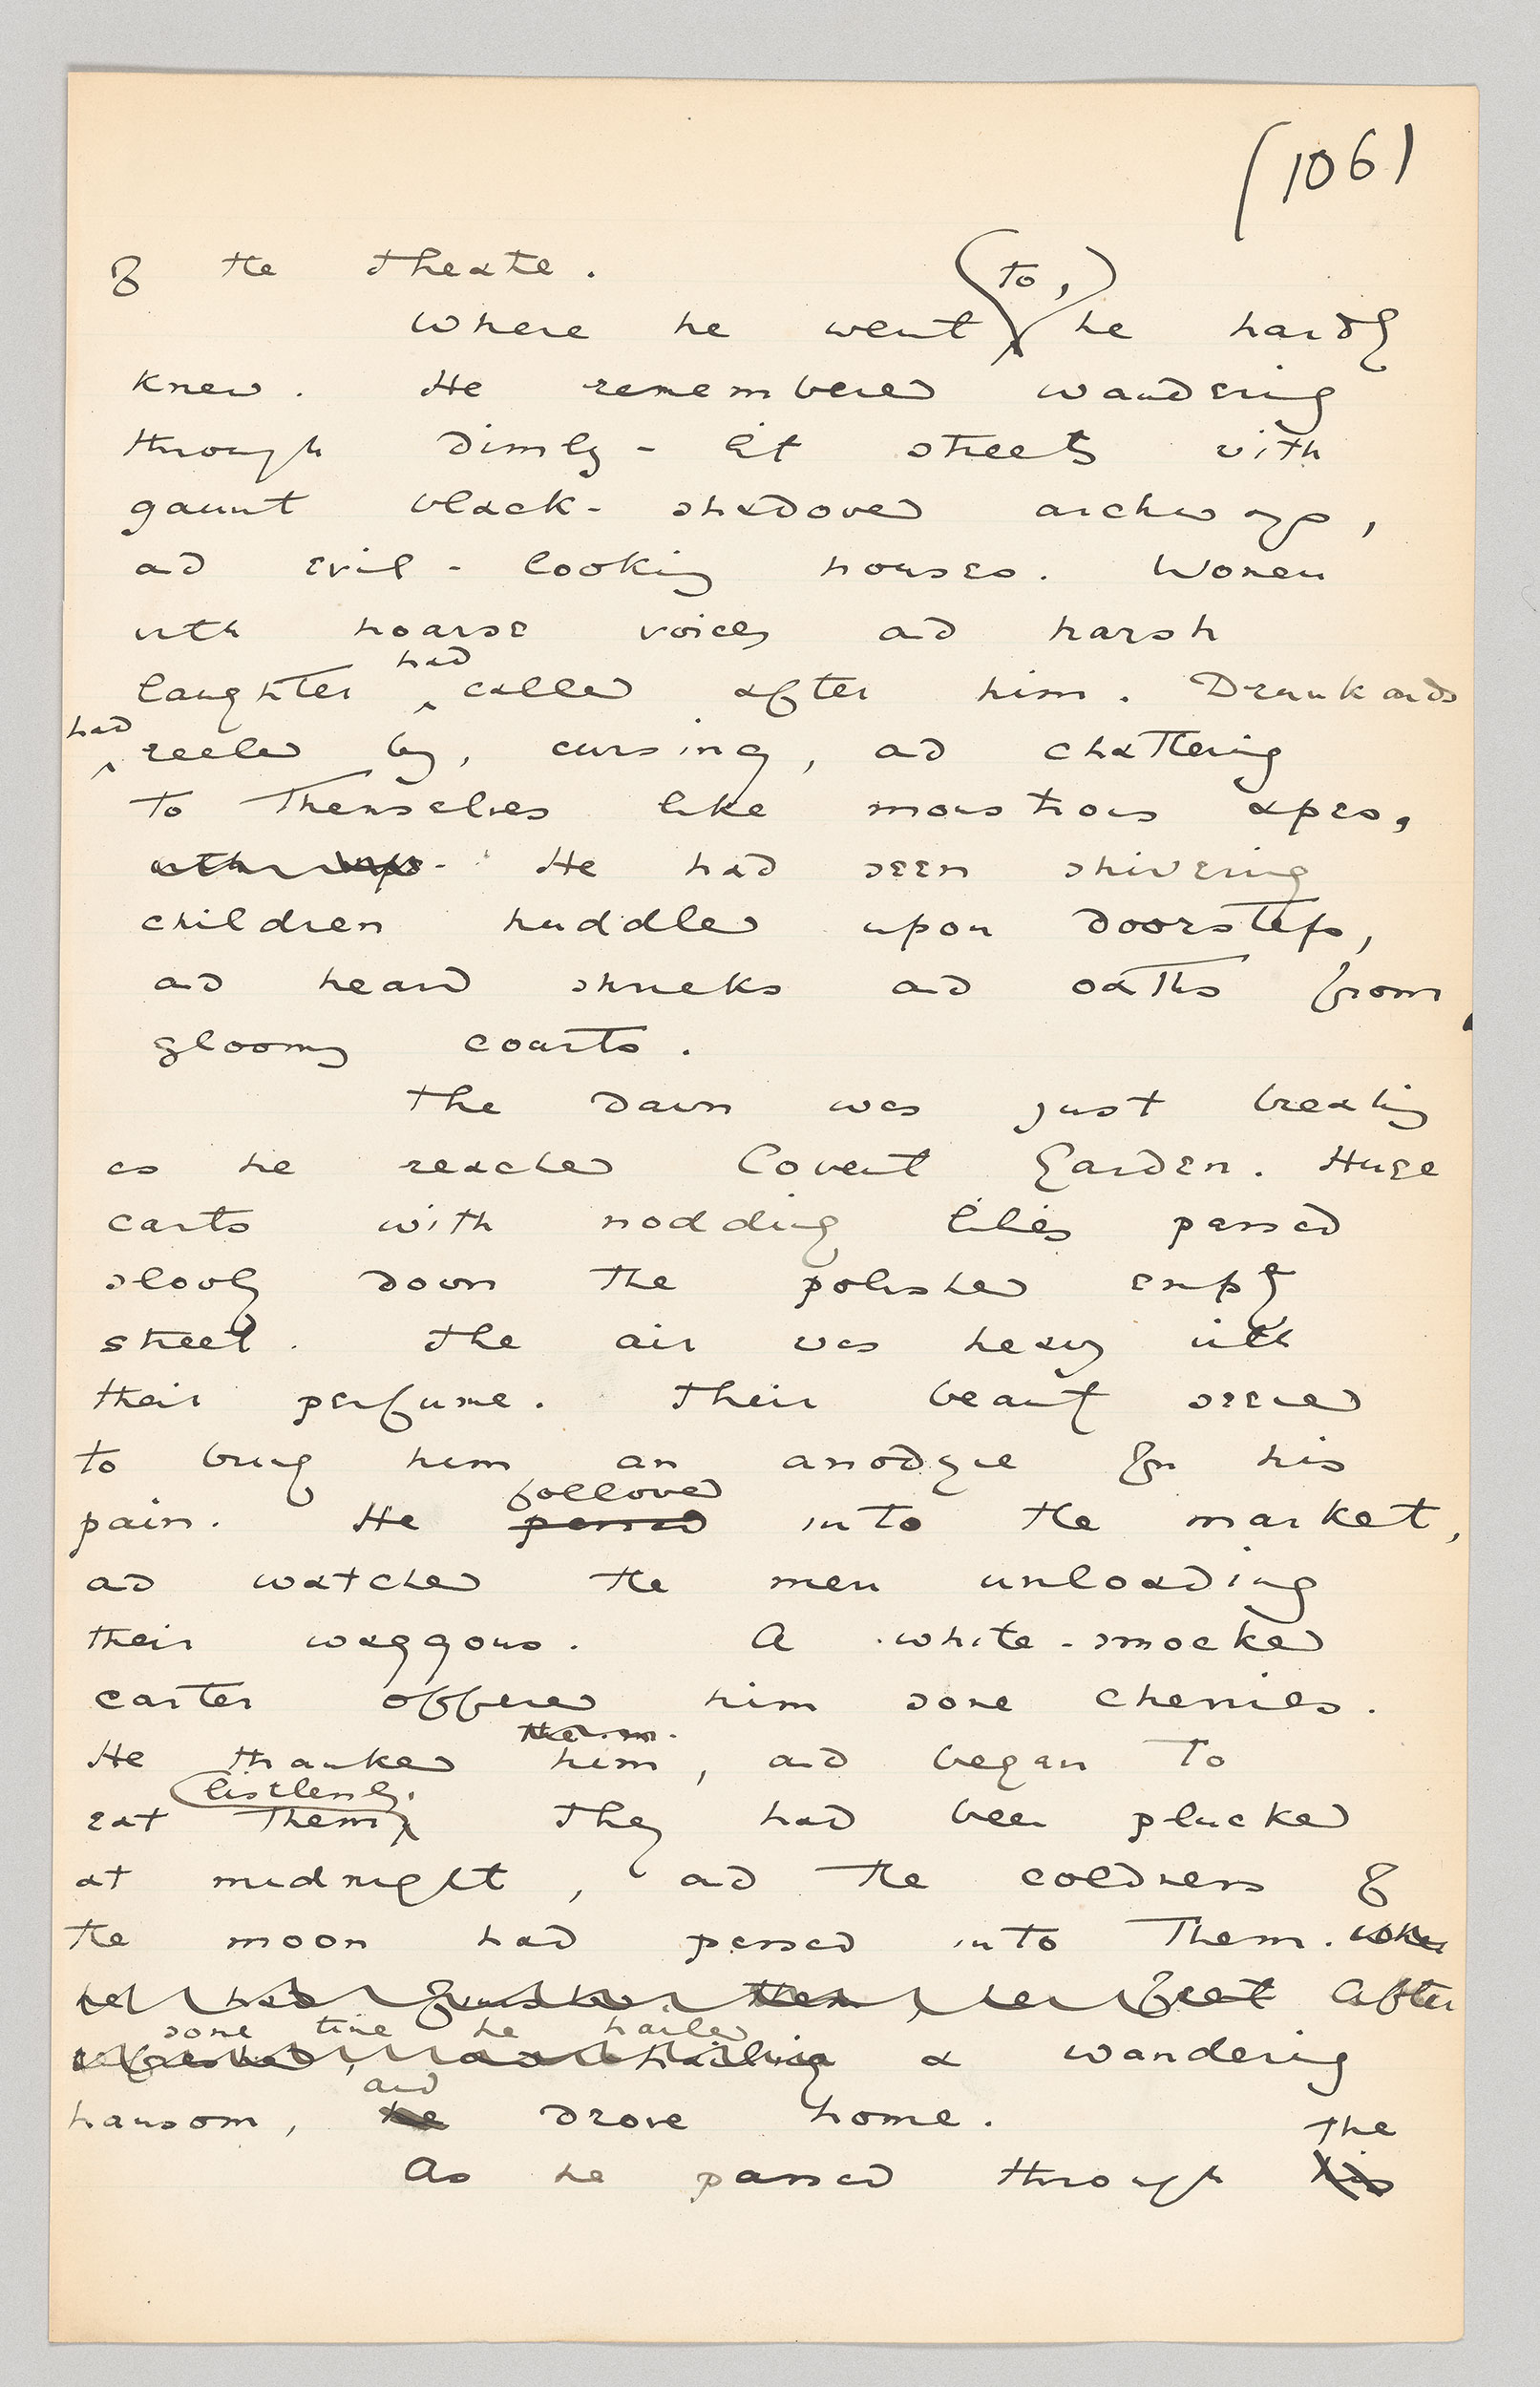 (106)
of the theatre.
Where he went to, he hardly
knew. He remembered wandering
through dimly-lit streets with
gaunt black-shadowed archways,
and evil-looking houses. Women
with hoarse voices and harsh
laughter had called after him. Drunkards
had reeled by, cursing, and chattering
to themselves like monstrous apes,
He had seen shivering
children huddled upon doorsteps,
and heard shrieks and oaths from
gloomy courts.
The dawn was just breaking
as he reached Covent Garden. Huge
carts with nodding lilies passed
slowly down the polished empty
street. The air was heavy with
their perfume. Their beauty seemed
to bring him an anodyne for his
followed
pain. He passed into the market,
and watched the men unloading
their waggons. A white-smocked
carter offered him some cherries.
them.
He thanked him, and began to
listlessly.
eat them They had been plucked
at midnight, and the coldness of
the moon had passed into them. when
he had finished them he felt After
some time he hailed
refreshed, hailing a wandering
and
hansom, he drove home.
the
As he passed through his